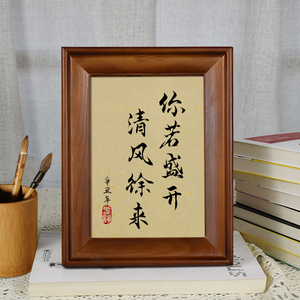 你若盛开
清风徐来
辛丑年